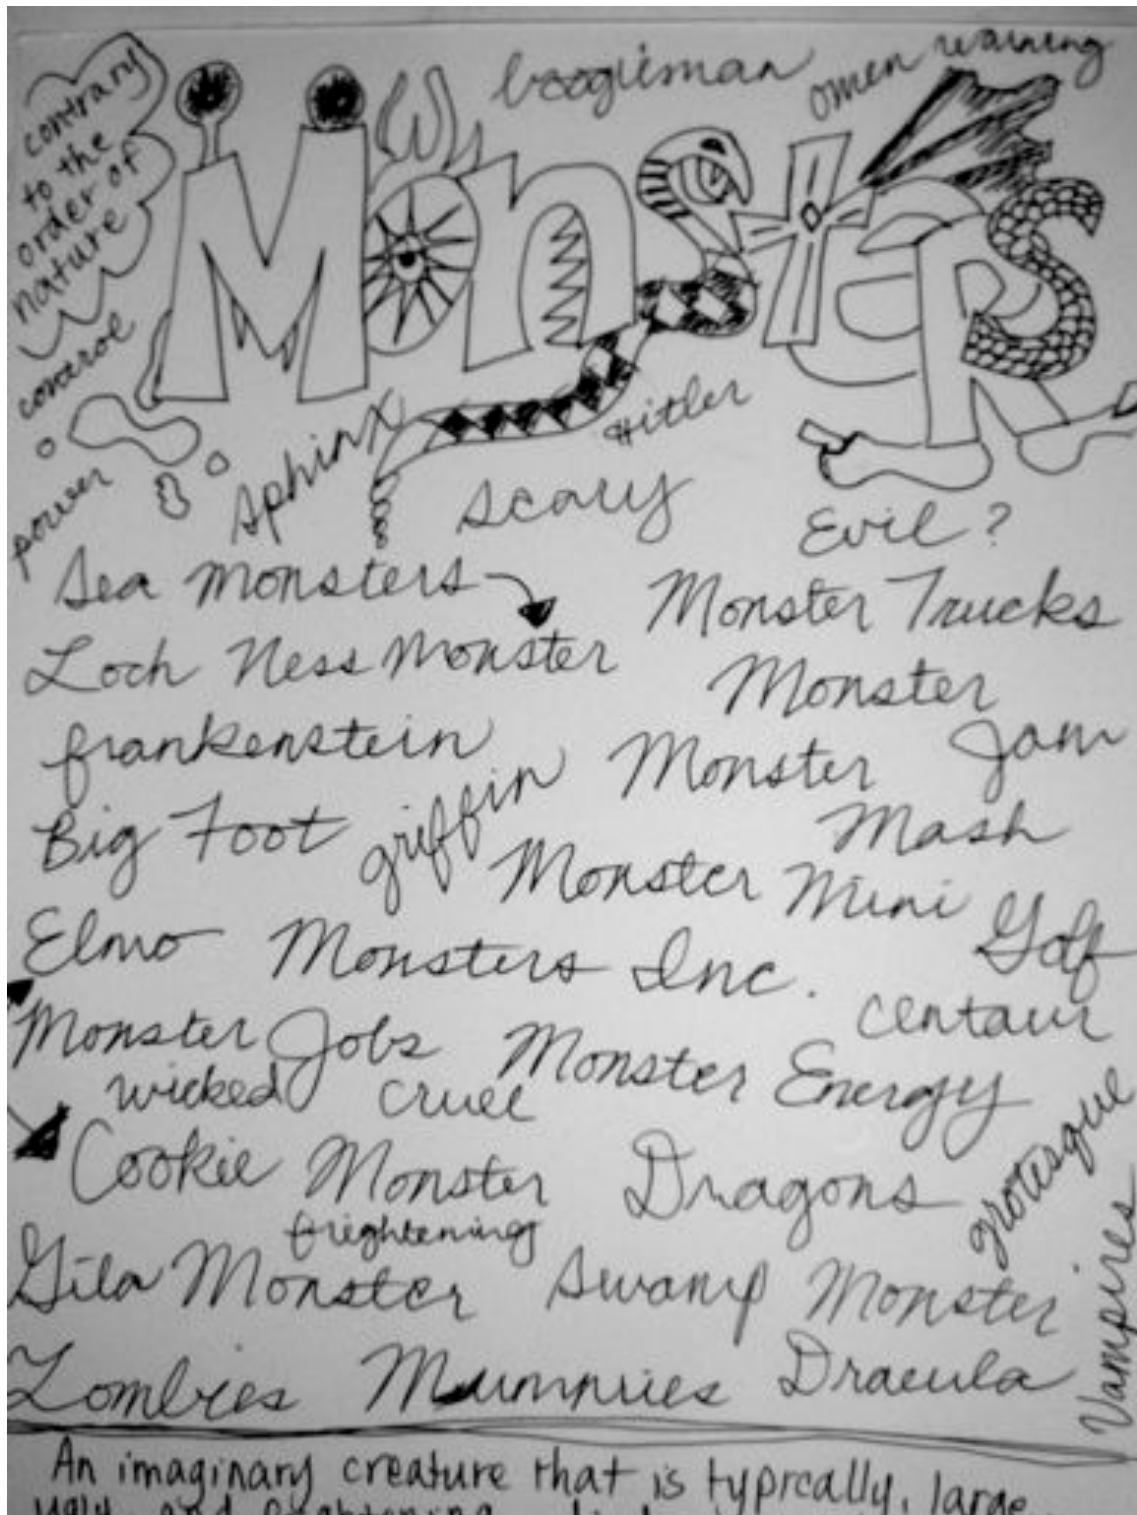 contrary
to the
order of
nature
boogieman
omen warning
MonsteRS
control
power
Sphinx
Hitler
scary
Evil?
Sea Monsters
Monster Trucks
Loch Ness Monster
Monster
Jam
frankenstein
Monster
Mash
Big Foot
griffin
Monster Mini
Golf
Elmo
Monsters Inc.
centaur
Monster Jobs
Monster Energy
wicked
cruel
Cookie Monster
Dragons
grotesque
frightening
Gila Monster
Swamp Monster
Vampires
Zombies
Mummies
Dracula
An imaginary creature that is typically, large,
ugly, and frightening